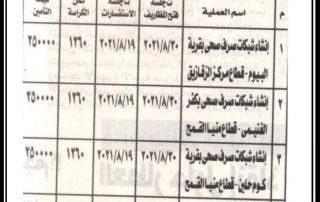 م اسم العملية فتح المظاريف الاستفسارات الكراسة التأمين
١ إنشاء شبكات صرف صحى بقرية ٢٠٢١/٨/٣٠ ٢٠٢١/٨/١٩ ١٣٦٠ ٢٥٠٠٠٠
البيوم - قطاع مركز الزقازيق
٢ إنشاء شبكات صرف صحى بكفر ٢٠٢١/٨/٣٠ ٢٠٢١/٨/١٩ ١٣٦٠ ٢٥٠٠٠٠
الغنيمى - قطاع منيا القمح
٣ إنشاء شبكات صرف صحى بقرية ٢٠٢١/٨/٣٠ ٢٠٢١/٨/١٩ ١٣٦٠ ٢٥٠٠٠٠
كوم حلين - قطاع منيا القمح